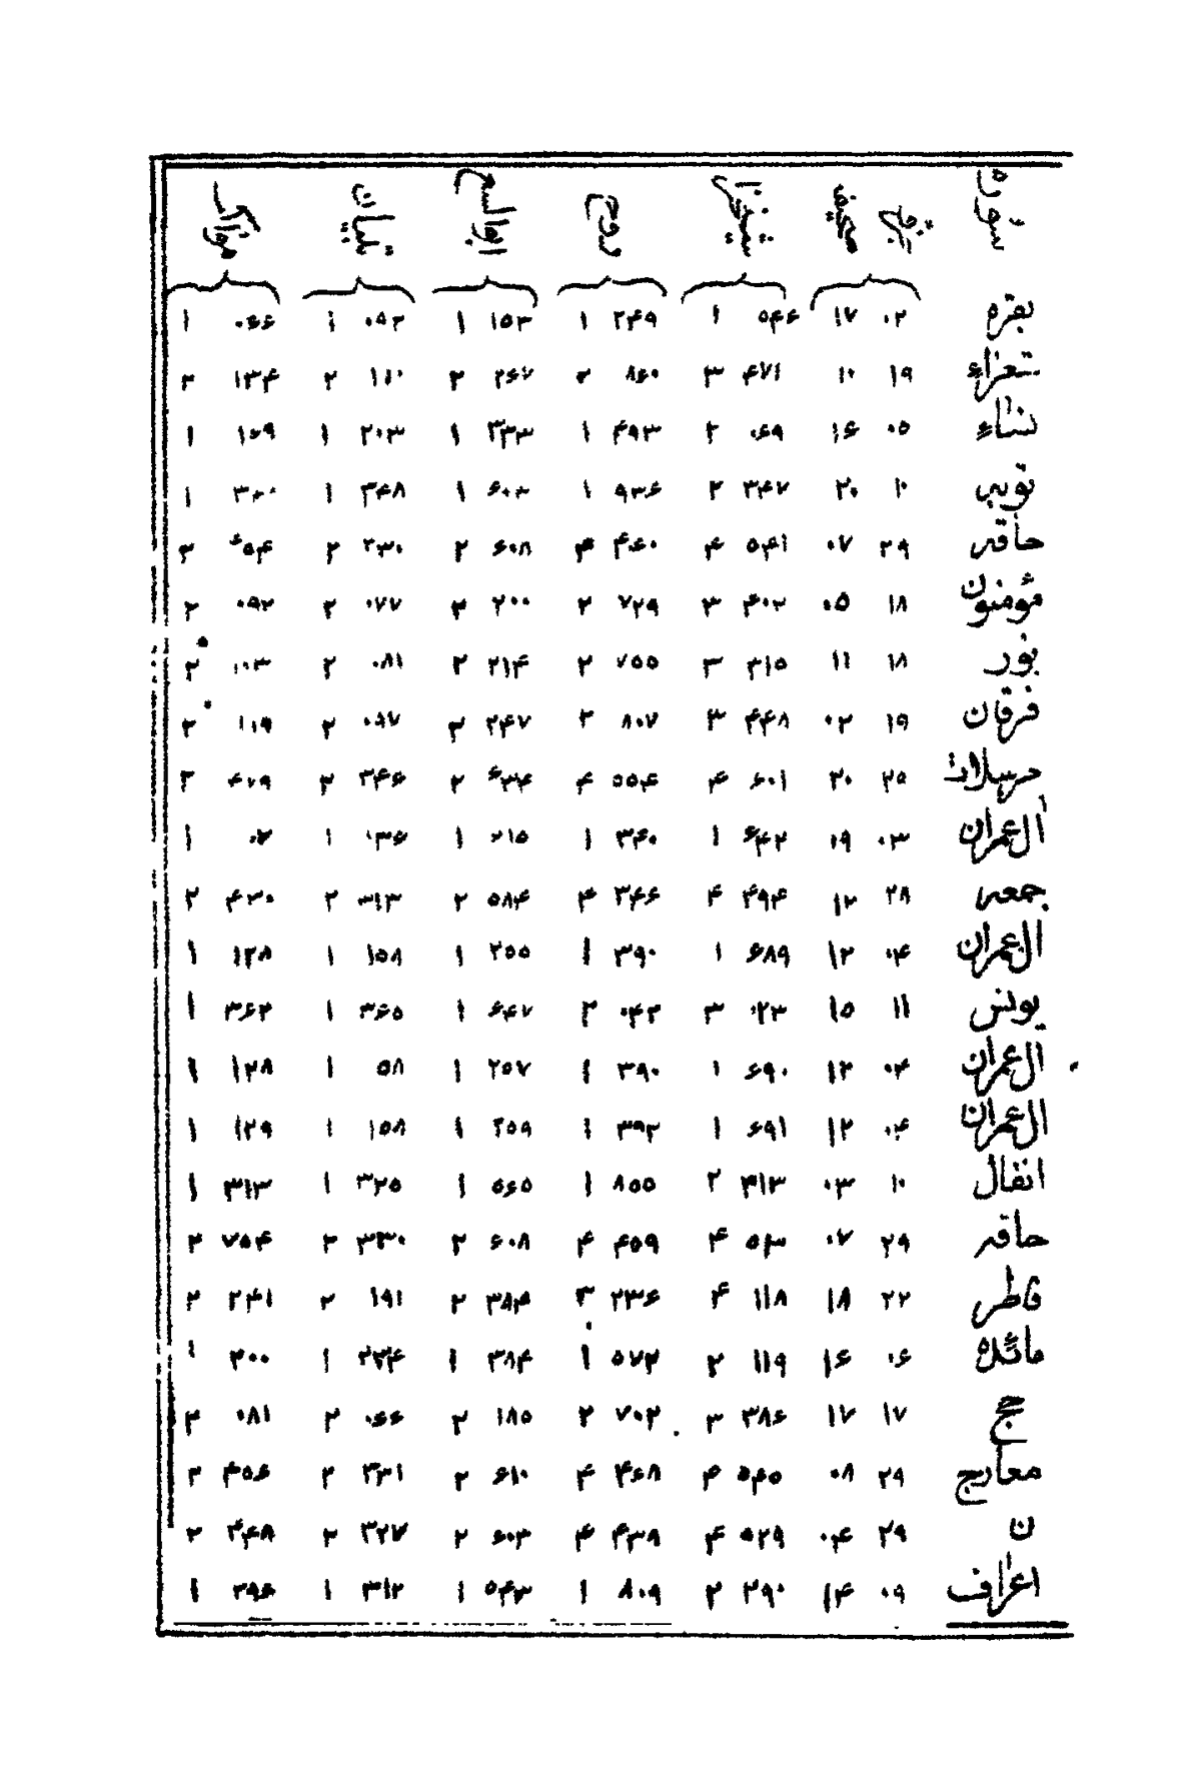 سوره جزء صحیفه روح ابوالسعود تبیان
بقره ۰۲ ۱۷ ۵۴۶ ۱ ۲۴۹ ۱ ۱۵۳ ۱ ۰۵۲ ۱ ۰۶۶ ۱
شعراء ۱۹ ۱۰ ۴۷۱ ۳ ۸۶۰ ۲ ۲۶۷ ۲ ۱۱۰ ۲ ۱۳۴ ۲
نساء ۰۵ ۱۶ ۰۶۹ ۲ ۴۹۳ ۱ ۳۳۳ ۱ ۲۰۳ ۱ ۱۶۹ ۱
توبه ۱۰ ۲۰ ۳۴۷ ۲ ۹۳۶ ۱ ۶۰۳ ۱ ۳۴۸ ۱ ۱
حاقه ۲۹ ۰۷ ۵۴۱ ۴ ۴۶۰ ۴ ۶۰۸ ۲ ۲۳۰ ۲
مؤمنون ۱۸ ۰۵ ۴۰۲ ۳ ۷۲۹ ۲ ۲۰۰ ۲ ۰۷۷ ۲ ۰۹۲ ۲
نور ۱۸ ۱۱ ۳۱۵ ۳ ۷۵۵ ۲ ۲۱۴ ۲ ۰۸۱ ۲ ۱۰۳ ۲
فرقان ۱۹ ۰۲ ۴۴۸ ۳ ۸۰۷ ۲ ۲۴۷ ۲ ۰۹۷ ۲ ۱۱۹ ۲
مرسلات ۲۵ ۲۰ ۶۰۱ ۴ ۵۵۴ ۴ ۶۳۴ ۲ ۳۴۶ ۲ ۴۷۹ ۲
آل عمران ۰۳ ۱۹ ۶۴۲ ۱ ۳۴۰ ۱ ۲۱۵ ۱ ۱۳۶ ۱ ۱
جمعه ۲۸ ۱۲ ۴۹۴ ۴ ۳۴۶ ۴ ۵۸۴ ۲ ۳۱۳ ۲ ۴۳۰ ۲
ال عمران ۰۴ ۱۲ ۶۸۹ ۱ ۳۹۰ ۱ ۲۵۵ ۱ ۱۵۸ ۱ ۱۲۸ ۱
یونس ۱۱ ۱۵ ۰۲۳ ۳ ۰۴۲ ۲ ۶۴۷ ۱ ۳۶۵ ۱ ۳۶۲ ۱
ال عمران ۰۴ ۱۲ ۶۹۰ ۱ ۳۹۰ ۱ ۲۵۷ ۱ ۵۸ ۱ ۱۲۸ ۱
ال عمران ۰۴ ۱۲ ۶۹۱ ۱ ۳۹۲ ۱ ۲۵۹ ۱ ۱۵۸ ۱ ۱۲۹ ۱
انفال ۱۰ ۰۳ ۳۱۳ ۲ ۸۵۵ ۱ ۵۶۵ ۱ ۳۲۵ ۱ ۳۱۳ ۱
حاقه ۲۹ ۰۷ ۵۳ ۴ ۴۵۹ ۴ ۶۰۸ ۲ ۳۳۰ ۲ ۷۵۴ ۲
فاطر ۲۲ ۱۸ ۱۱۸ ۴ ۲۳۶ ۳ ۳۸۴ ۲ ۱۹۱ ۲ ۲۴۱ ۲
مائده ۰۶ ۱۶ ۱۱۹ ۲ ۵۷۲ ۱ ۳۸۴ ۱ ۲۳۴ ۱ ۲۰۰ ۱
حج ۱۷ ۱۷ ۳۸۶ ۳ ۷۰۲ ۲ ۱۸۵ ۲ ۰۶۶ ۲ ۰۸۱ ۲
معارج ۲۹ ۰۸ ۵۴۵ ۴ ۴۶۸ ۴ ۶۱۰ ۲ ۳۳۱ ۲ ۴۵۶ ۲
ن ۲۹ ۰۴ ۵۲۹ ۴ ۴۳۸ ۴ ۶۰۳ ۲ ۳۲۷ ۲ ۴۴۸ ۲
اعراف ۰۹ ۱۴ ۲۹۰ ۲ ۸۰۹ ۱ ۵۴۳ ۱ ۳۱۲ ۱ ۲۹۶ ۱